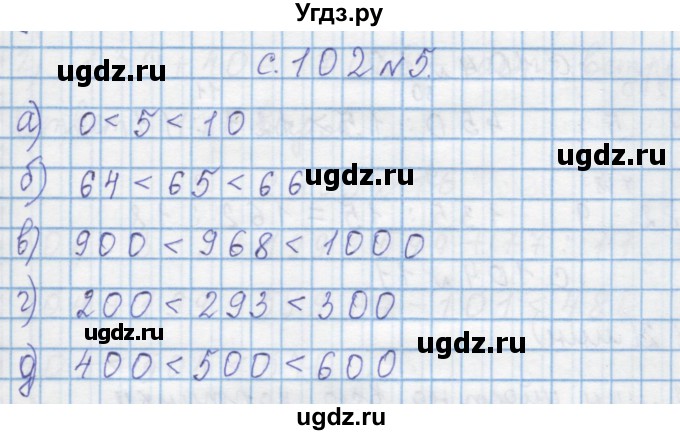 Угдз.ру
ugdz.ru
с. 102 №5.
ugdz.ru
а) 0 < 5 < 10
ugdz.ru
б) 64 < 65 < 66
ugdz.ru
в) 900 < 968 < 1000
г) 200 < 293 < 300
ugdz.ru
ugdz.ru
д) 400 < 500 < 600
ugdz.ru